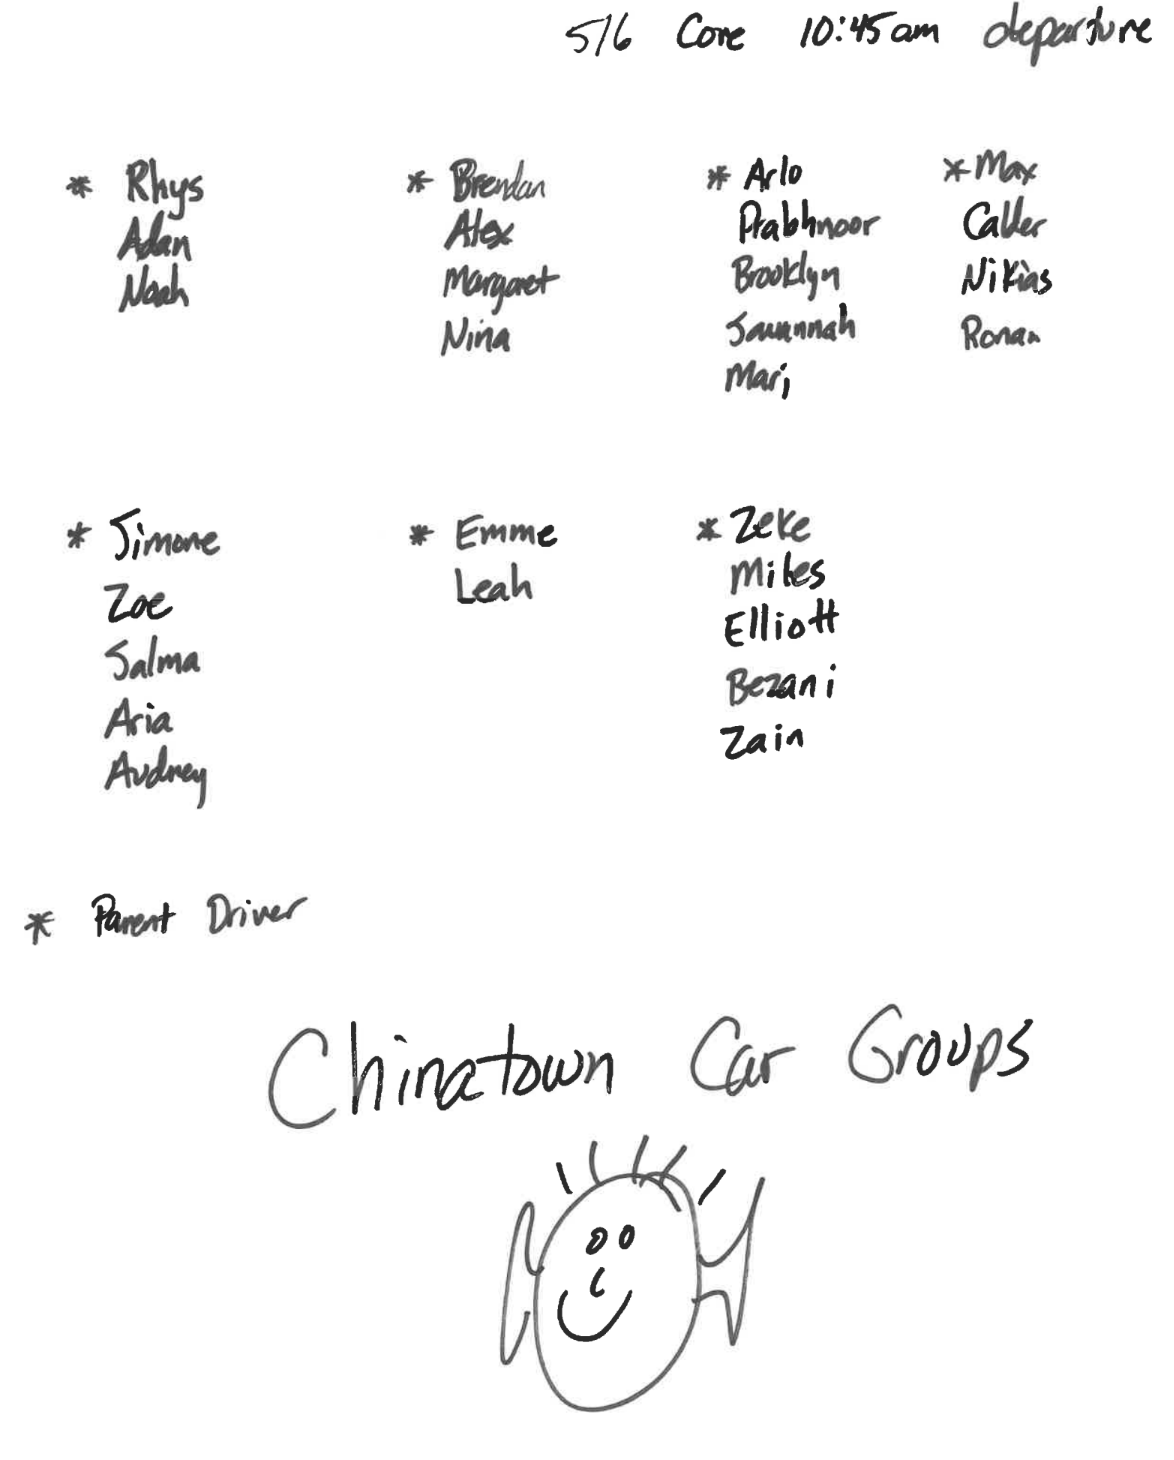 5/6 Core 10:45am departure
* Rhys
Adan
Noah
* Brendan
Alex
Margaret
Nina
* Arlo
Prabhnoor
Brooklyn
Savannah
Mari
* Max
Calder
Nikias
Ronan
* Simone
Zoe
Salma
Aria
Audrey
* Emme
Leah
* Zeke
Miles
Elliott
Bezani
Zain
* Parent Driver
Chinatown Car Groups